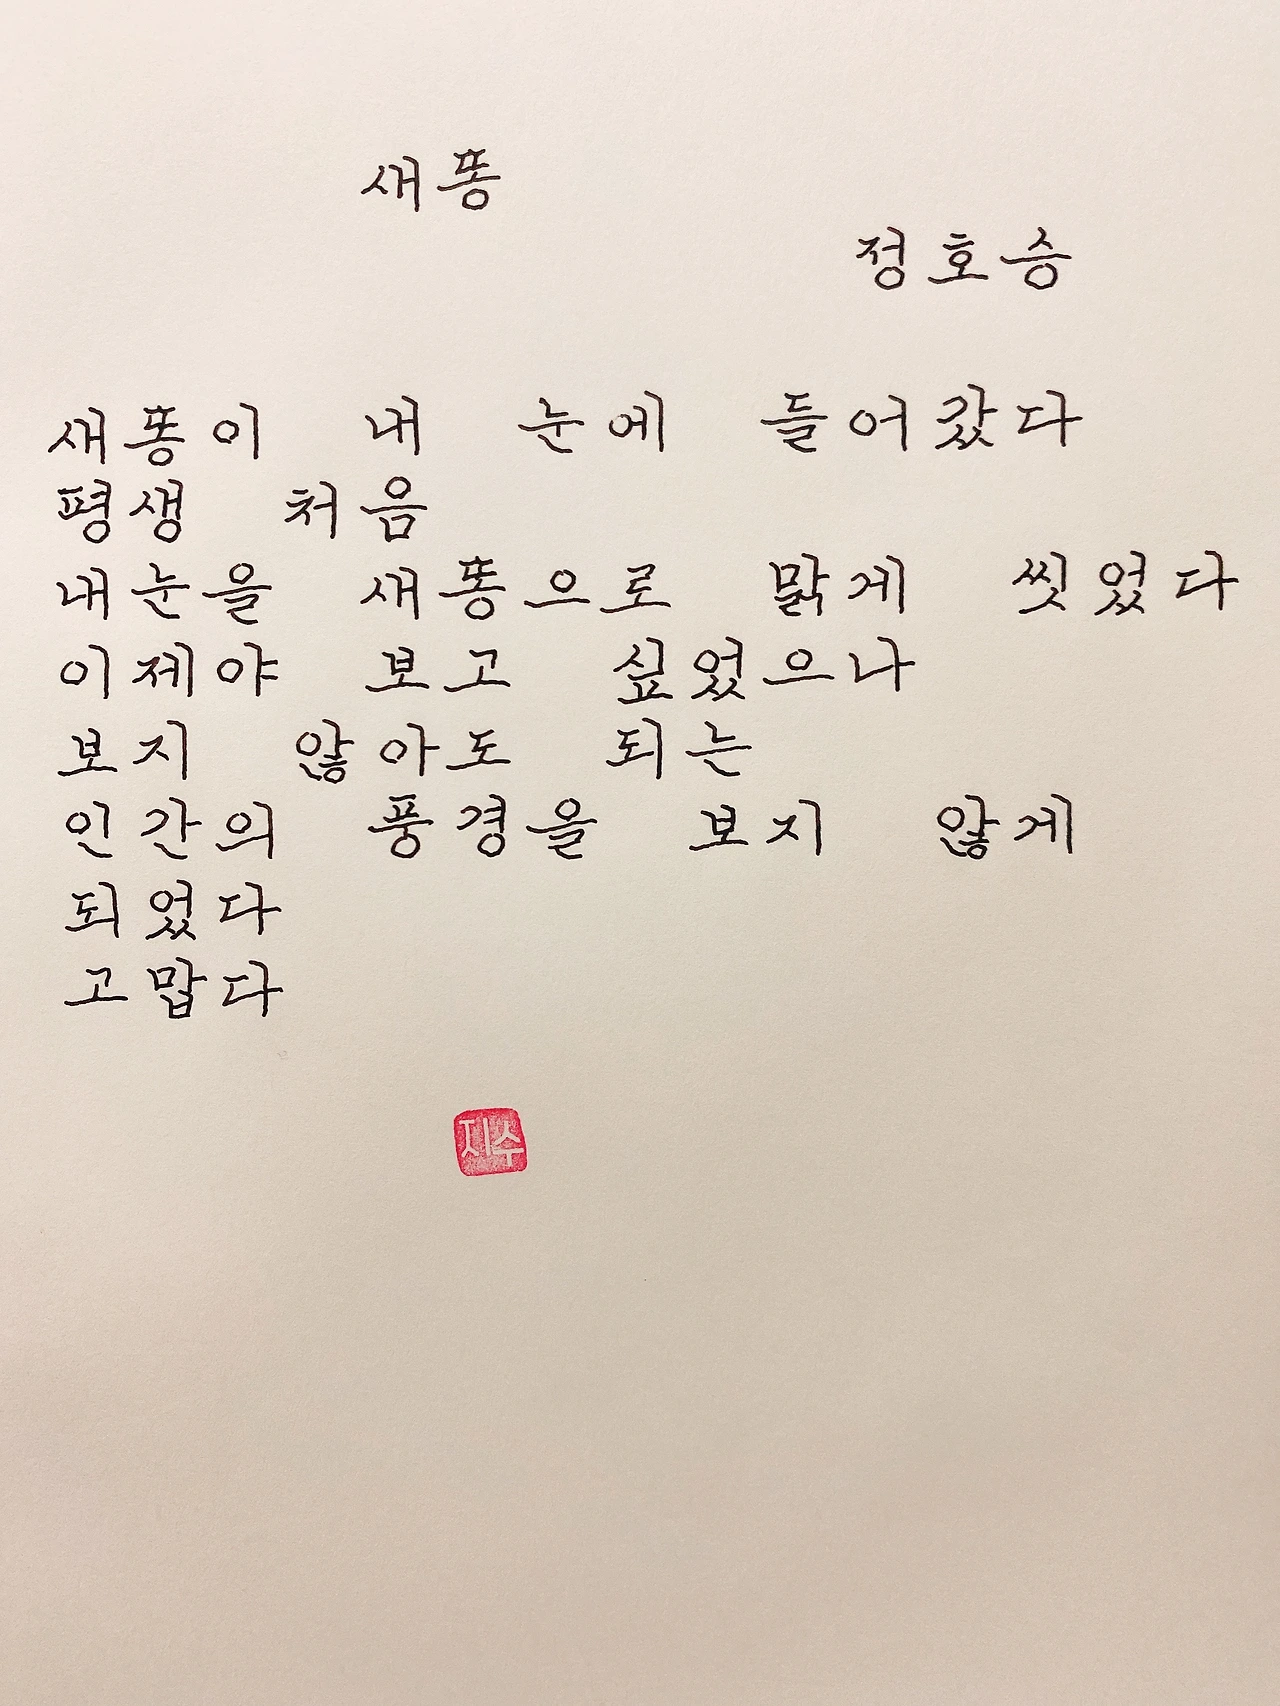 새똥
정호승
새똥이 내 눈에 들어갔다
평생 처음
내 눈을 새똥으로 맑게 씻었다
이제야 보고 싶었으나
보지 않아도 되는
인간의 풍경을 보지 않게
되었다
고맙다
지수